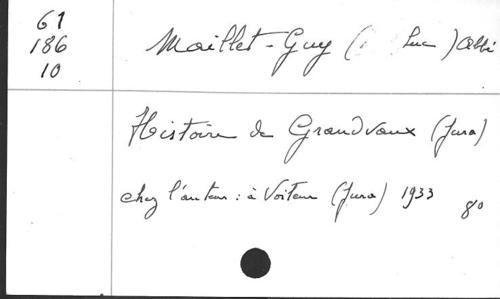 61
186
10
Maillet-Guy (Luc) Abbé
Histoire de Grandvaux (Jura)
chez l'auteur : à Voiteur (Jura) 1933 8°